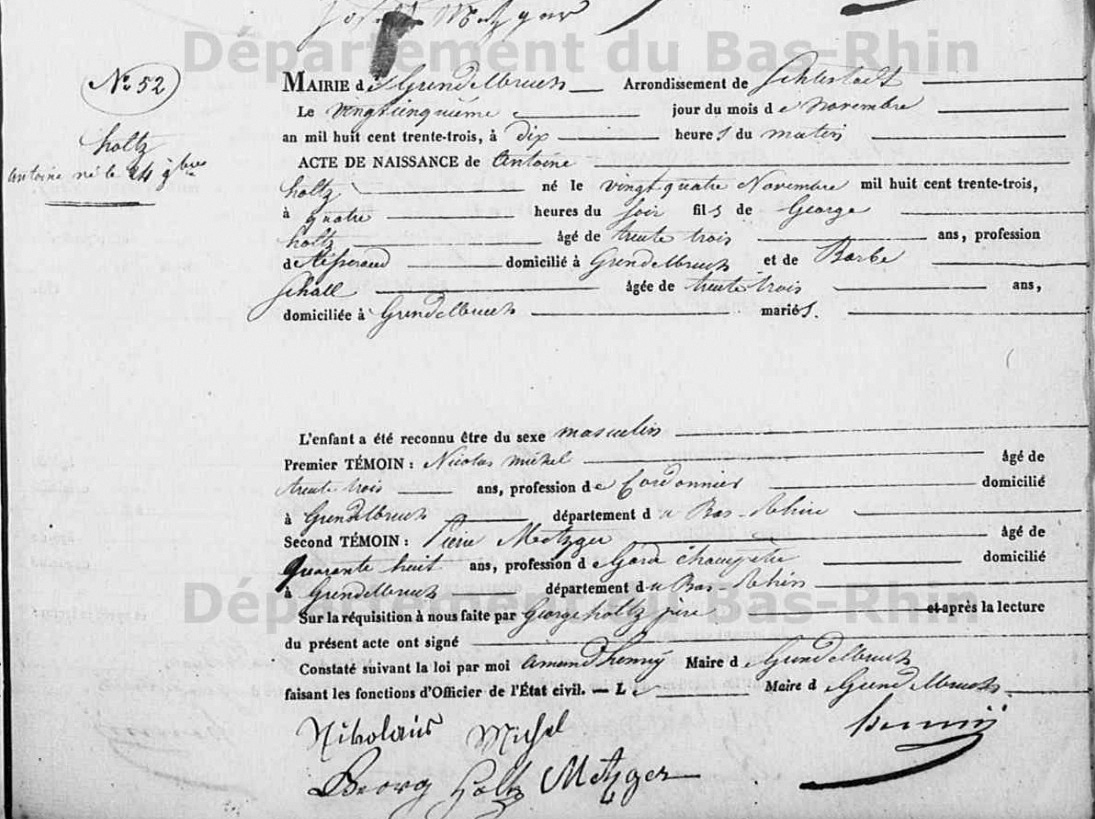 Joseph Metzger
Département du Bas-Rhin
N.° 52
holtz
Antoine né le 24 9bre
MAIRIE de Grendelbruch Arrondissement de Schlestadt
Le vingt cinquième jour du mois de Novembre
an mil huit cent trente-trois, à dix heures du matin
ACTE DE NAISSANCE de Antoine
holtz né le vingt quatre Novembre mil huit cent trente-trois,
à quatre heures du soir fils de George
holtz âgé de trente trois ans, profession
de tisserand domicilié à Grendelbruch et de Barbe
Schall âgée de trente trois ans,
domiciliée à Grendelbruch mariés.
L'enfant a été reconnu être du sexe masculin
Premier TÉMOIN : Nicolas Michel âgé de
trente trois ans, profession de Cordonnier domicilié
à Grendelbruch département du Bas-Rhin
Second TÉMOIN : Pierre Metzger âgé de
Quarante huit ans, profession de Gard champetre domicilié
à Grendelbruch département du Bas-Rhin
Département du Bas-Rhin
Sur la réquisition à nous faite par George holtz père et après la lecture
du présent acte ont signé
Constaté suivant la loi par moi Amand henny Maire de Grendelbruch
faisant les fonctions d'Officier de l'État civil. — Le Maire de Grendelbruch
Nikolaus Michel henny
Georg Holtz Metzger